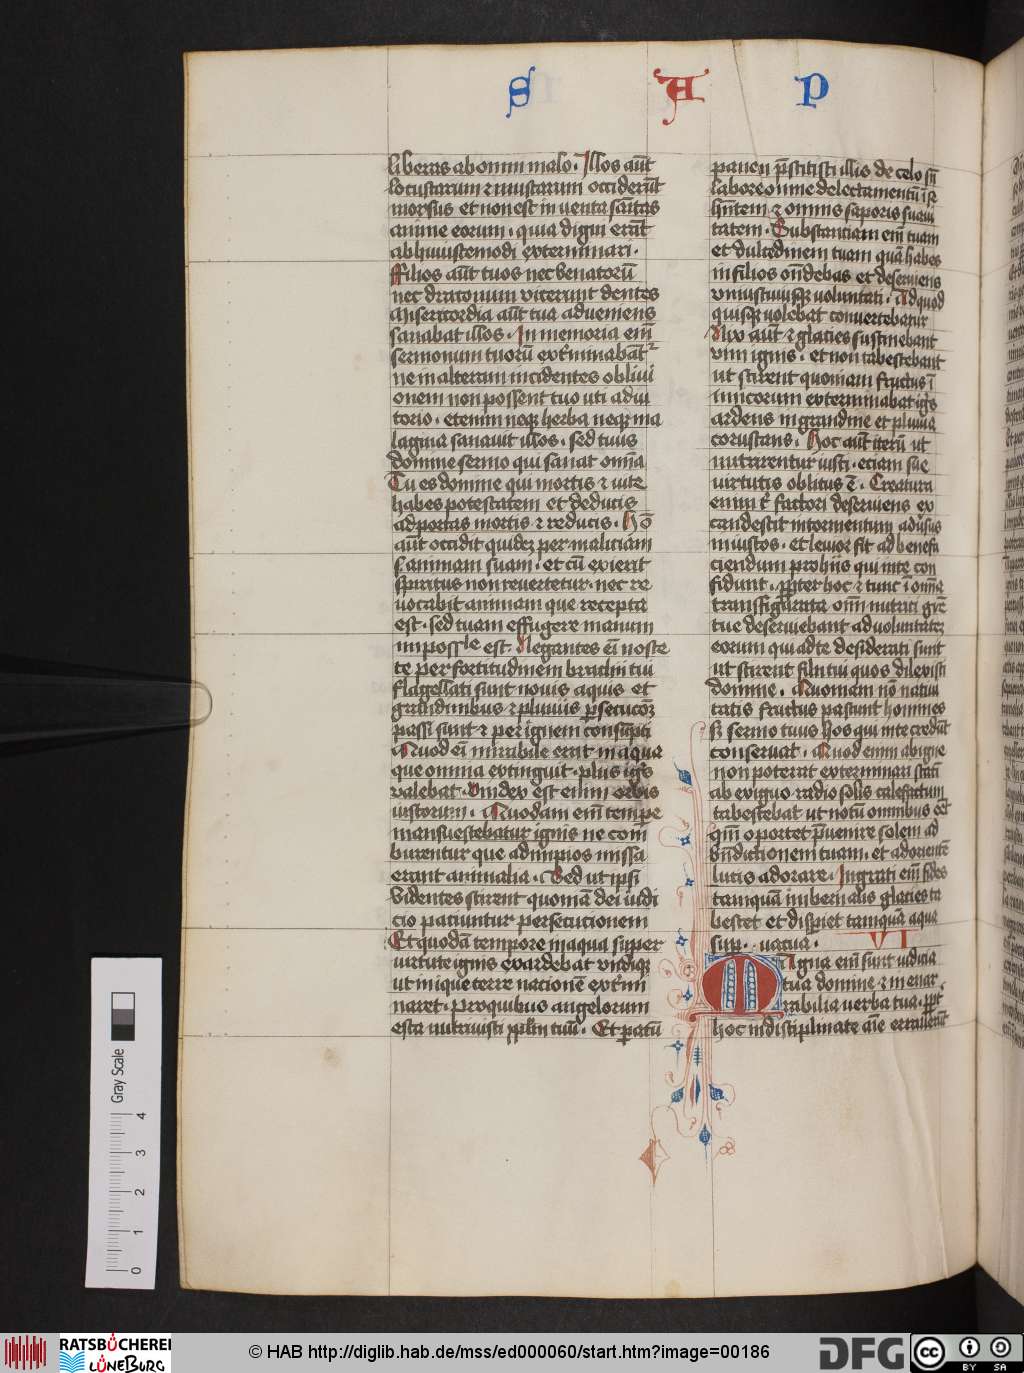 S A P
liberas ab omni malo. Illos aūt
locustarum ⁊ muscarum occiderūt
morsus et non est in uenta sāitas
anime eorum. quia digni erāt
ab huiuscemodi exterminari.
ffilios aūt tuos nec venatorū
nec draconum vicerunt dentes
Misericordia aūt tua adueniens
sanabat illos. In memoria em̄
sermonum tuorū ext'minabāt'
ne in alteram incidentes obliui
onem non possent tuo uti adiu
torio. etenim neqꝫ herba neqꝫ ma
lagma sanauit illos. sed tuus
domine sermo qui sanat omīa
Tu es domine qui mortis ⁊ uite
habes potestatem et deducis
ad portas mortis ⁊ reducis. Hō
aūt occidit quidez per maliciam
s'animam suam. et cū exierit
spiritus non reuertetur. nec re
uocabit animam que recepta
est. sed tuam effugere manum
imposs'le est. Negantes ei' noste
te per fortitudinem brachii tui
flagellati sunt nouis aquis et
grandinibus ⁊ pluuiis ꝑsecucōꝫ
passi sunt ⁊ per ignem consūpti
Quod ei' mirabile erat in aqua
que omnia extinguit. plus ig's
valebat. vindex est enim orbis
iustorum. Quodam em̄ tempe
mansuescebatur ignis ne com
burentur que ad impios missa
erant animalia. Sed ut ipsi
videntes scirent quoniām dei iudi
cio paciuntur persecucionem
Et quodā tempore in aqua super
uirtute ignis exardebat vndiqꝫ
ut inique terre nacionē ext'mi
naret. Pro quibus angelorum
esca nutriuisti pplm tuū. Et paratū
panem p̄stitisti illis de celo sn̄
labore omne delectamentū ī se
hn̄tem ⁊ omnis saporis suaui
tatem. Substanciam em̄ tuam
et dulcedinem tuam quā habes
in filios on̄debas et deseruiens
vniuscuiusqꝫ voluntati. Ad quod
quisqꝫ volebat conuertebatur
Nix aūt ⁊ glacies sustinebant
vim ignis. et non tabescebant
ut scirent quoniam fructus ī
imicorum exterminabat ig's
ardens in grandine et pluuia
coruscans. Hoc aūt iterū ut
nutrirentur iusti. eciam sue
uirtutis oblitus ē. Creatura
enim t' factori deseruiens ex
candescit in tormentum adu'sus
iniustos. et leuior fit ad benefa
ciendum pro hiis qui in te con
fidunt. ꝓpter hoc ⁊ tunc ī omīa
transfigurata omī nutrici gr'e
tue deseruiebant ad voluntatez
eorum qui ad te desiderati sunt
ut scirent filii tui quos dilexisti
domine. Quoniam nō natiui
tatis fructus pascunt homines
sꝫ sermo tuus hos qui in te credūt
conseruat. Quod enim ab igne
non poterat exterminari statī
ab exiguo radio solis calefactum
tabescebat ut notū omnibus eēt
qm̄ oportet p̄uenire solem ad
bn̄dictionem tuam. et ad orientē
lucis adorare. Ingrati em̄ fides
tamquā hibernalis glacies ta
bescet et disperiet tamquā aqua
sup. uacua. VI
Magna em̄ sunt iudicia
tua domine ⁊ inenar
rabilia verba tua. ꝓpt'
hoc indisciplinate aīe errauerūt
Gray Scale
0 1 2 3 4
RATSBÜCHEREI
LÜNEBURG
© HAB http://diglib.hab.de/mss/ed000060/start.htm?image=00186
DFG
cc BY SA